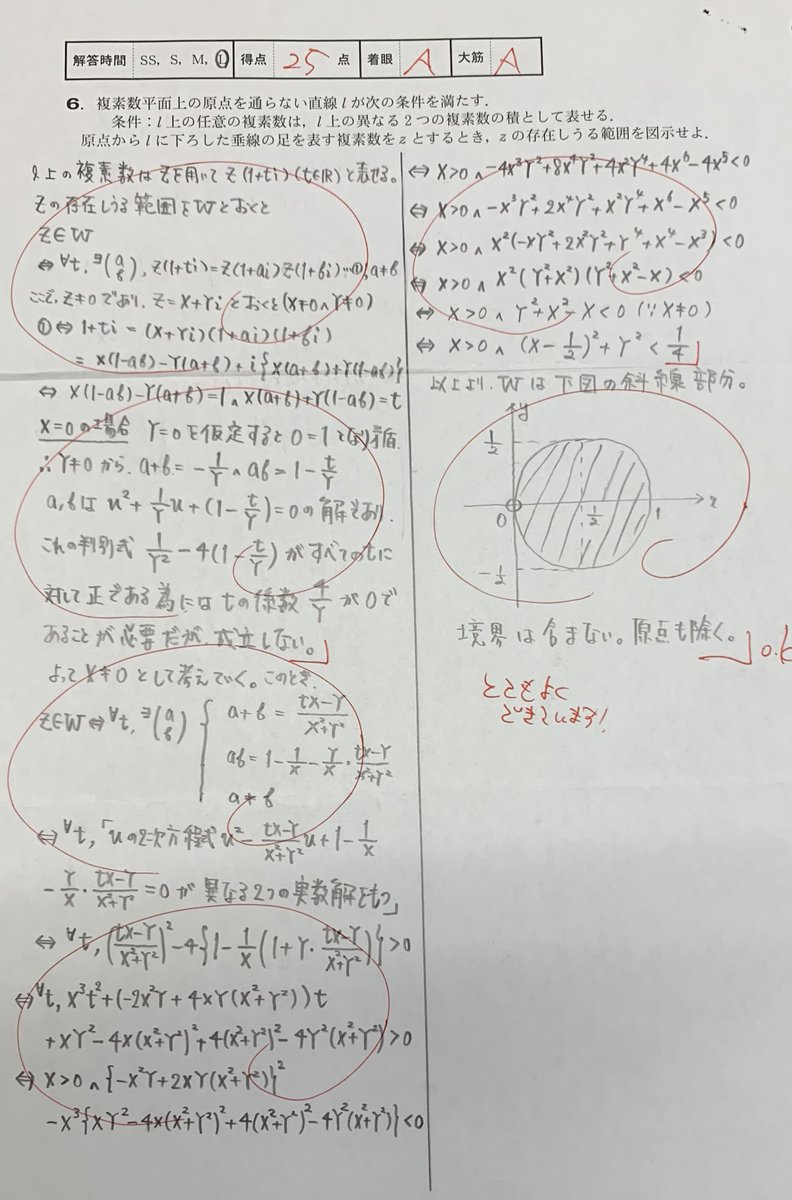 解答時間 SS, S, M, L 得点 25 点 着眼 A 大筋 A
6. 複素数平面上の原点を通らない直線 l が次の条件を満たす.
条件：l 上の任意の複素数は, l 上の異なる2つの複素数の積として表せる.
原点から l に下ろした垂線の足を表す複素数を z とするとき, z の存在しうる範囲を図示せよ.
l上の複素数はzを用いてz(1+ti)(t∈ℝ)と表せる。
zの存在しうる範囲をWとおくと
z∈W
⇔ ∀t, ∃(a b), z(1+ti)=z(1+ai)z(1+bi)…①, a≠b
ここで, z≠0であり, z=X+Yiとおくと(X≠0∧Y≠0)
①⇔ 1+ti = (X+Yi)(1+ai)(1+bi)
= X(1-ab)-Y(a+b)+i{X(a+b)+Y(1-ab)}
⇔ X(1-ab)-Y(a+b)=1∧X(a+b)+Y(1-ab)=t
X=0の場合 Y=0を仮定すると0=1となり矛盾.
∴Y≠0から, a+b=-1/Y∧ab=1-t/Y
a,bはu²+1/Y u+(1-t/Y)=0の解であり,
これの判別式 1/Y²-4(1-t/Y)がすべてのtに
対して正である為にはtの係数 4/Y が0で
あることが必要だが, 成立しない。
よってX≠0として考えていく。このとき.
z∈W⇔∀t, ∃(a b) { a+b=(tX-Y)/(X²+Y²)
ab=1-1/X-Y/X・(tX-Y)/(X²+Y²)
a≠b
⇔∀t,「uの2次方程式u²-(tX-Y)/(X²+Y²)u+1-1/X
-Y/X・(tX-Y)/(X²+Y²)=0が異なる2つの実数解をもつ」
⇔∀t, ((tX-Y)/(X²+Y²))²-4{1-1/X(1+Y・(tX-Y)/(X²+Y²))}>0
⇔∀t, X³t²+(-2X²Y+4XY(X²+Y²))t
+XY²-4X(X²+Y²)²+4(X²+Y²)²-4Y²(X²+Y²)>0
⇔X>0∧{-X²Y+2XY(X²+Y²)}²
-X³{XY²-4X(X²+Y²)²+4(X²+Y²)²-4Y²(X²+Y²)}<0
⇔X>0∧-4X³Y²+8X⁴Y²+4X²Y⁴+4X⁶-4X⁵<0
⇔X>0∧-X³Y²+2X⁴Y²+X²Y⁴+X⁶-X⁵<0
⇔X>0∧X²(-XY²+2X²Y²+Y⁴+X⁴-X³)<0
⇔X>0∧X²(Y²+X²)(Y²+X²-X)<0
⇔X>0∧Y²+X²-X<0(∵X≠0)
⇔X>0∧(X-1/2)²+Y²<1/4
以上より, Wは下図の斜線部分。
y
1/2
0 1/2 1 x
-1/2
境界は含まない。原点も除く。
0.k
とてもよく
できています!